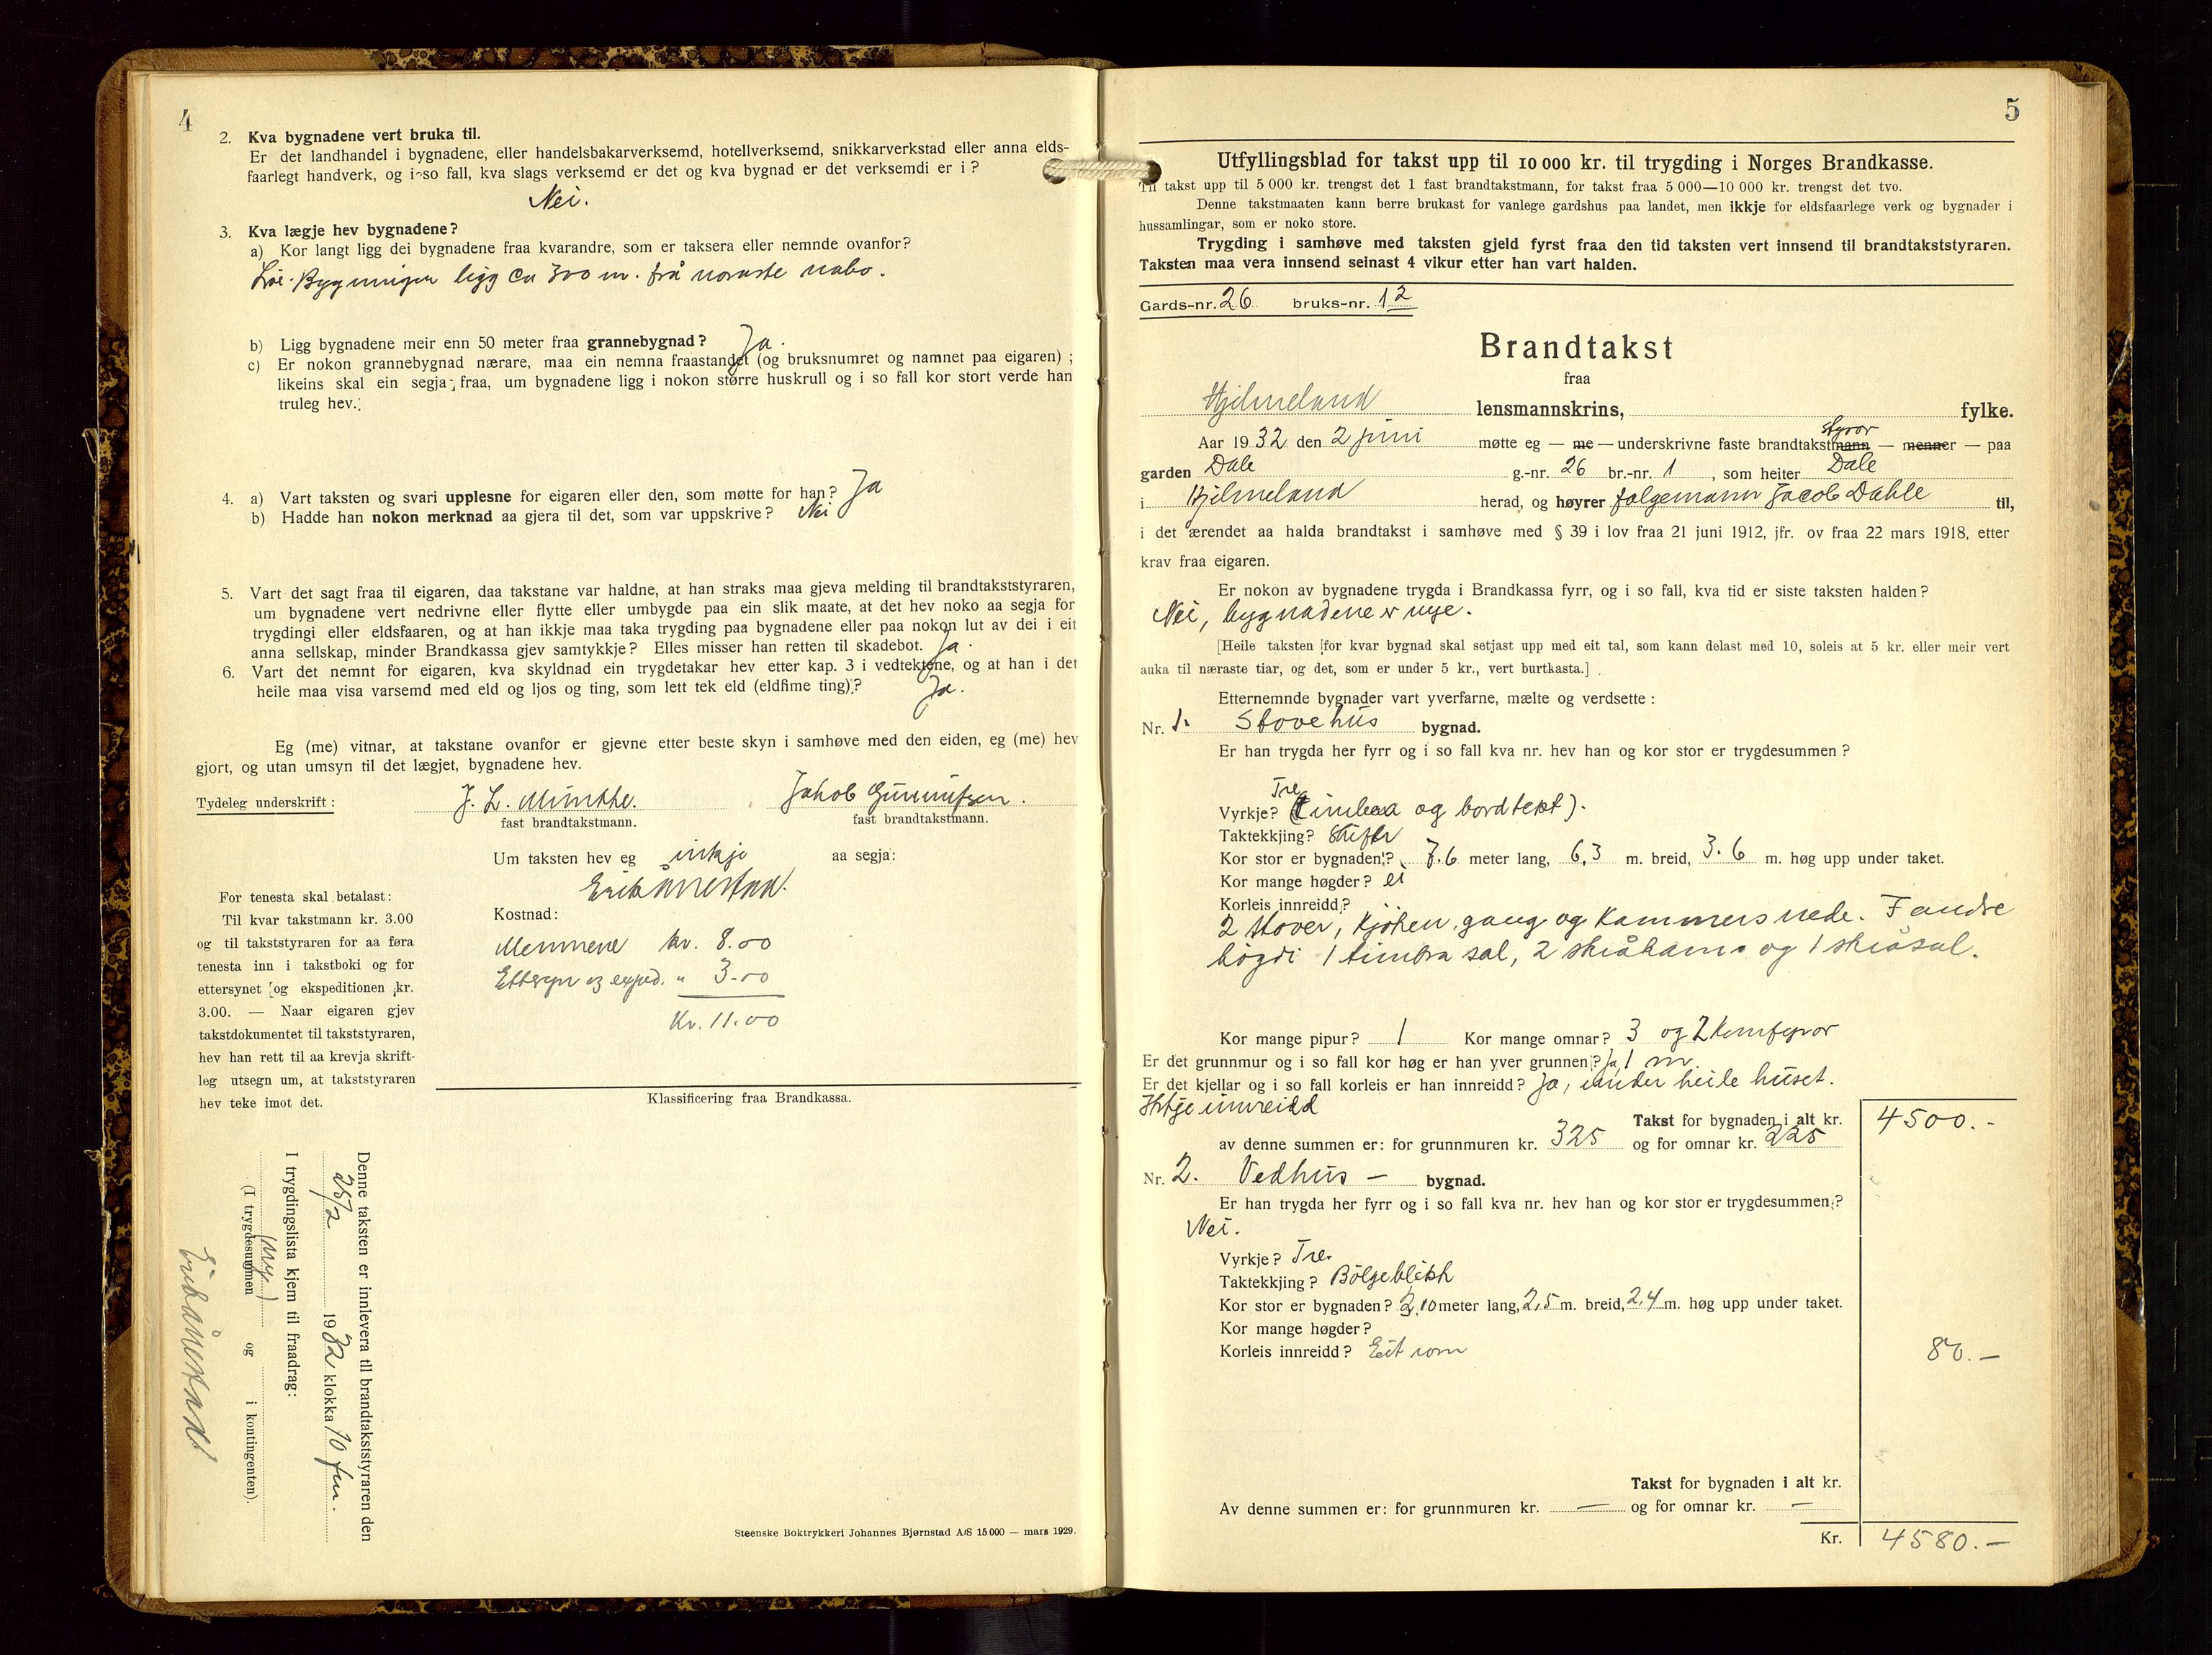 4
2. Kva bygnadene vert bruka til.
Er det landhandel i bygnadene, eller handelsbakarverksemd, hotellverksemd, snikkarverkstad eller anna elds-
faarlegt handverk, og i so fall, kva slags verksemd er det og kva bygnad er det verksemdi er i?
Nei.
3. Kva lægje hev bygnadene?
a) Kor langt ligg dei bygnadene fraa kvarandre, som er taksera eller nemnde ovanfor?
Löe-Bygningen ligg ca 300 m. frå noraste nabo.
b) Ligg bygnadene meir enn 50 meter fraa grannebygnad? Ja.
c) Er nokon grannebygnad nærare, maa ein nemna fraastandet (og bruksnumret og namnet paa eigaren);
likeins skal ein segja fraa, um bygnadene ligg i nokon større huskrull og i so fall kor stort verde han
truleg hev.
4. a) Vart taksten og svari upplesne for eigaren eller den, som møtte for han? Ja
b) Hadde han nokon merknad aa gjera til det, som var uppskrive? Nei
5. Vart det sagt fraa til eigaren, daa takstane var haldne, at han straks maa gjeva melding til brandtakststyraren,
um bygnadene vert nedrivne eller flytte eller umbygde paa ein slik maate, at det hev noko aa segja for
trygdingi eller eldsfaaren, og at han ikkje maa taka trygding paa bygnadene eller paa nokon lut av dei i eit
anna sellskap, minder Brandkassa gjev samtykkje? Elles misser han retten til skadebot. Ja.
6. Vart det nemnt for eigaren, kva skyldnad ein trygdetakar hev etter kap. 3 i vedtektene, og at han i det
heile maa visa varsemd med eld og ljos og ting, som lett tek eld (eldfime ting)? Ja.
Eg (me) vitnar, at takstane ovanfor er gjevne etter beste skyn i samhøve med den eiden, eg (me) hev
gjort, og utan umsyn til det lægjet, bygnadene hev.
Tydeleg underskrift: J. L. Munthe. Jakob Gunnufsen.
fast brandtakstmann. fast brandtakstmann.
Um taksten hev eg inkje aa segja:
Erik Ånestad.
Kostnad:
Mennene kr. 8.00
Ettersyn og exped. " 3.00
Kr. 11.00
For tenesta skal betalast:
Til kvar takstmann kr. 3.00
og til takststyraren for aa føra
tenesta inn i takstboki og for
ettersynet og ekspeditionen kr.
3.00. — Naar eigaren gjev
takstdokumentet til takststyraren,
hev han rett til aa krevja skrift-
leg utsegn um, at takststyraren
hev teke imot det.
Klassificering fraa Brandkassa.
Denne taksten er innlevera til brandtakststyraren den
25/2 1932 klokka 10 fm.
I trygdingslista kjem til fraadrag:
(ny)
(I trygdesummen og i kontingenten).
Erik Ånestad
Steenske Boktrykkeri Johannes Bjørnstad A/S 15 000 — mars 1929.
5
Utfyllingsblad for takst upp til 10 000 kr. til trygding i Norges Brandkasse.
Til takst upp til 5 000 kr. trengst det 1 fast brandtakstmann, for takst fraa 5 000—10 000 kr. trengst det tvo.
Denne takstmaaten kann berre brukast for vanlege gardshus paa landet, men ikkje for eldsfaarlege verk og bygnader i
hussamlingar, som er noko store.
Trygding i samhøve med taksten gjeld fyrst fraa den tid taksten vert innsend til brandtakststyraren.
Taksten maa vera innsend seinast 4 vikur etter han vart halden.
Gards-nr. 26 bruks-nr. 12
Brandtakst
fraa
Hjelmeland lensmannskrins, fylke.
styrar
Aar 1932 den 2 juni møtte eg — me — underskrivne faste brandtakstmann — menner — paa
garden Dale g.-nr. 26 br.-nr. 1, som heiter Dale
i Hjelmeland herad, og høyrer følgemann Jacob Dahle til,
i det ærendet aa halda brandtakst i samhøve med § 39 i lov fraa 21 juni 1912, jfr. ov fraa 22 mars 1918, etter
krav fraa eigaren.
Er nokon av bygnadene trygda i Brandkassa fyrr, og i so fall, kva tid er siste taksten halden?
Nei, bygnadene er nye.
[Heile taksten for kvar bygnad skal setjast upp med eit tal, som kann delast med 10, soleis at 5 kr. eller meir vert
auka til næraste tiar, og det, som er under 5 kr., vert burtkasta.]
Etternemnde bygnader vart yverfarne, mælte og verdsette:
Nr. 1. Stovehus bygnad.
Er han trygda her fyrr og i so fall kva nr. hev han og kor stor er trygdesummen?
Tre
Vyrkje? (timbra og bordtekt).
Taktekkjing? Skifer
Kor stor er bygnaden? 7.6 meter lang, 6,3 m. breid, 3.6 m. høg upp under taket.
Kor mange høgder? ei
Korleis innreidd?
2 stover, kjøken, gang og kammers nede. I andre
høgdi 1 timbra sal, 2 skråkam. og 1 skråsal.
Kor mange pipur? 1 Kor mange omnar? 3 og 2 komfyrar
Er det grunnmur og i so fall kor høg er han yver grunnen? Ja, 1 m.
Er det kjellar og i so fall korleis er han innreidd? Ja, under heile huset.
Ikkje innreidd
Takst for bygnaden i alt kr. 4500.-
av denne summen er: for grunnmuren kr. 325 og for omnar kr. 225
Nr. 2. Vedhus — bygnad.
Er han trygda her fyrr og i so fall kva nr. hev han og kor stor er trygdesummen?
Nei.
Vyrkje? Tre.
Taktekkjing? Bölgeblikk
Kor stor er bygnaden? 2.10 meter lang, 2,5 m. breid, 2,4 m. høg upp under taket.
Kor mange høgder?
Korleis innreidd? Eit rom 80.—
Takst for bygnaden i alt kr.
Av denne summen er: for grunnmuren kr. — og for omnar kr. —
Kr. 4580.—